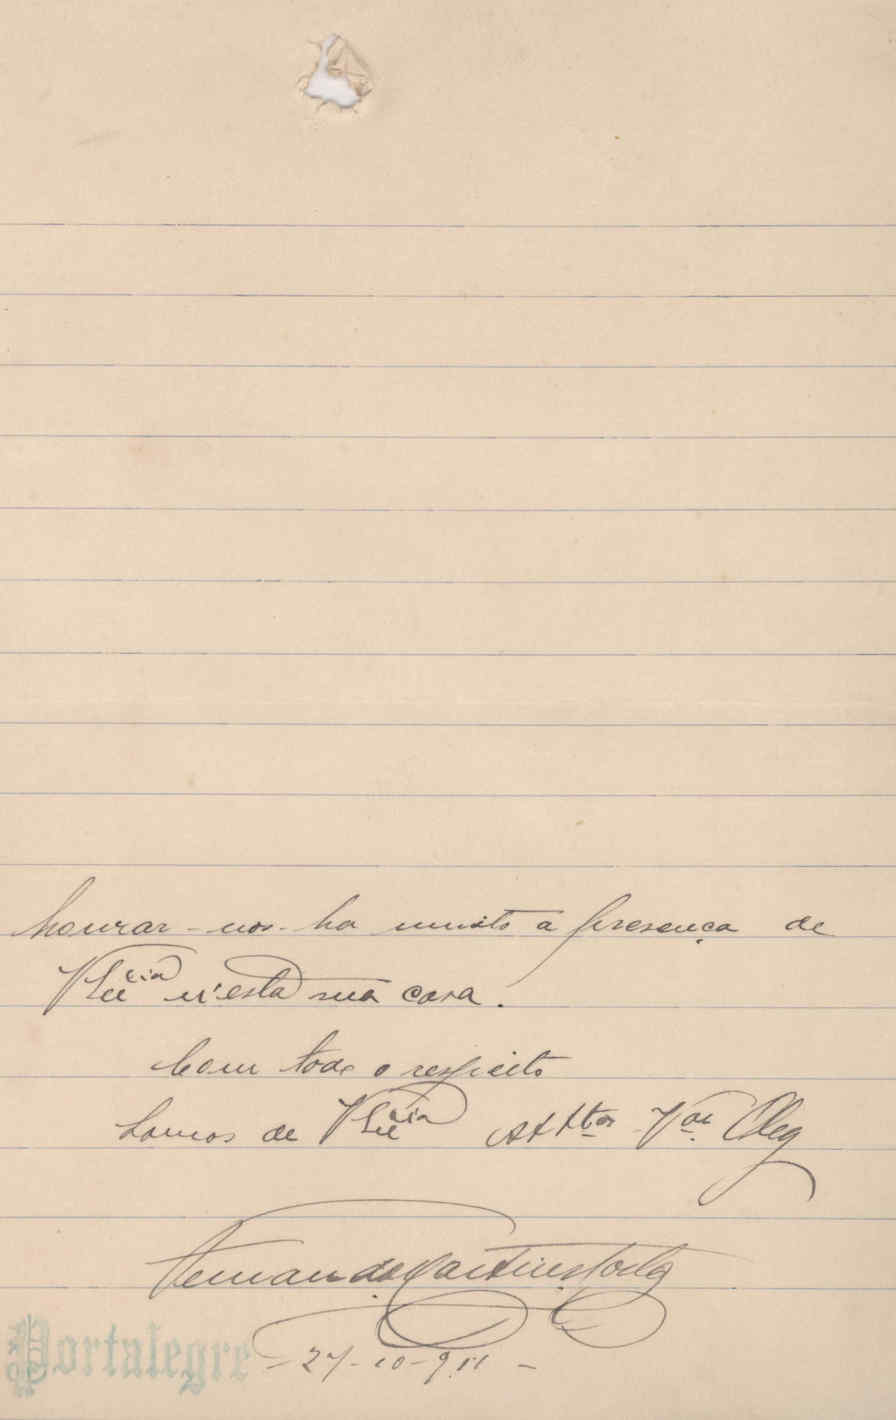 honrar-nos-ha muito a presença de
V Ex.cia n'esta sua casa.
Com todo o respeito
Somos de V Ex.cia Atttos Vor Obg
Fernando Martins
Portalegre - 27-10-911 -